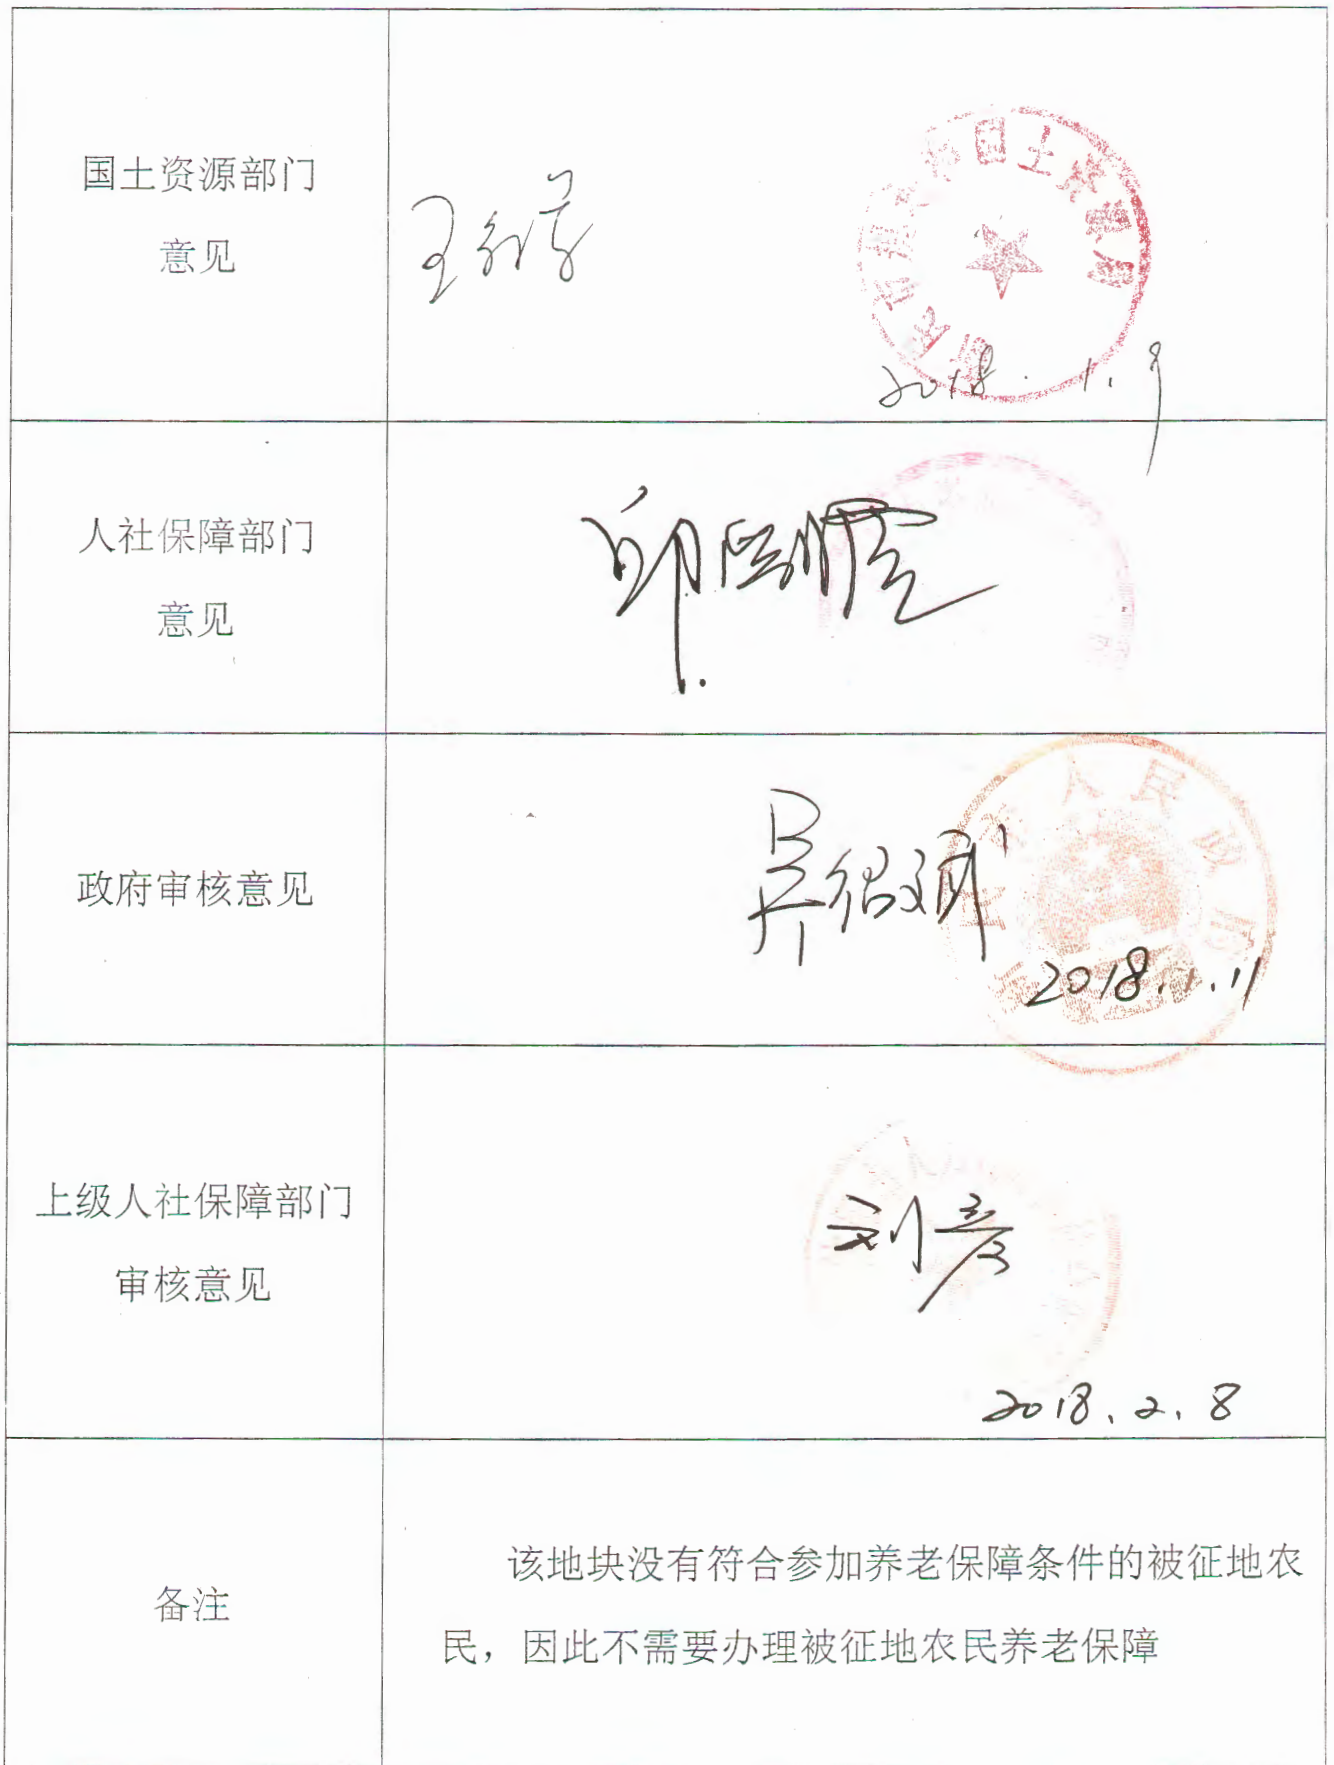 国土资源部门
意见
国土资源局
2018.1.9
人社保障部门
意见
政府审核意见
人民政府
2018.1.11
上级人社保障部门
审核意见
刘彦
2018.2.8
备注
该地块没有符合参加养老保障条件的被征地农
民，因此不需要办理被征地农民养老保障